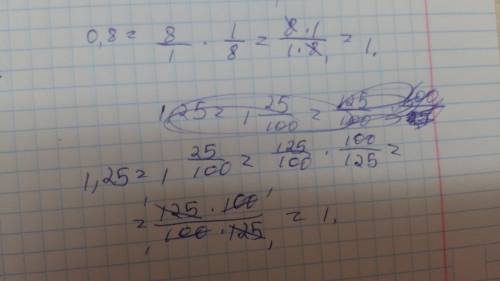 0,8 = 8/1 · 1/8 = 8·1/1·8 = 1.
1,25 = 1 25/100 = 125/100
1,25 = 1 25/100 = 125/100 · 100/125 =
= 125·100/100·125 = 1.